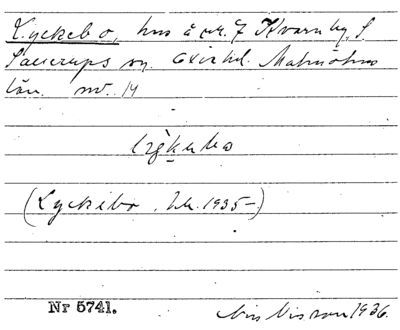 Lyckebo, hus å nr. 7 Kvarnby, S
Sallerups sn. Oxie hd. Malmöhus
län. nr. 14
(Lyckebo. 1935-)
Nr 5741.
Nils Nilsson 1936.